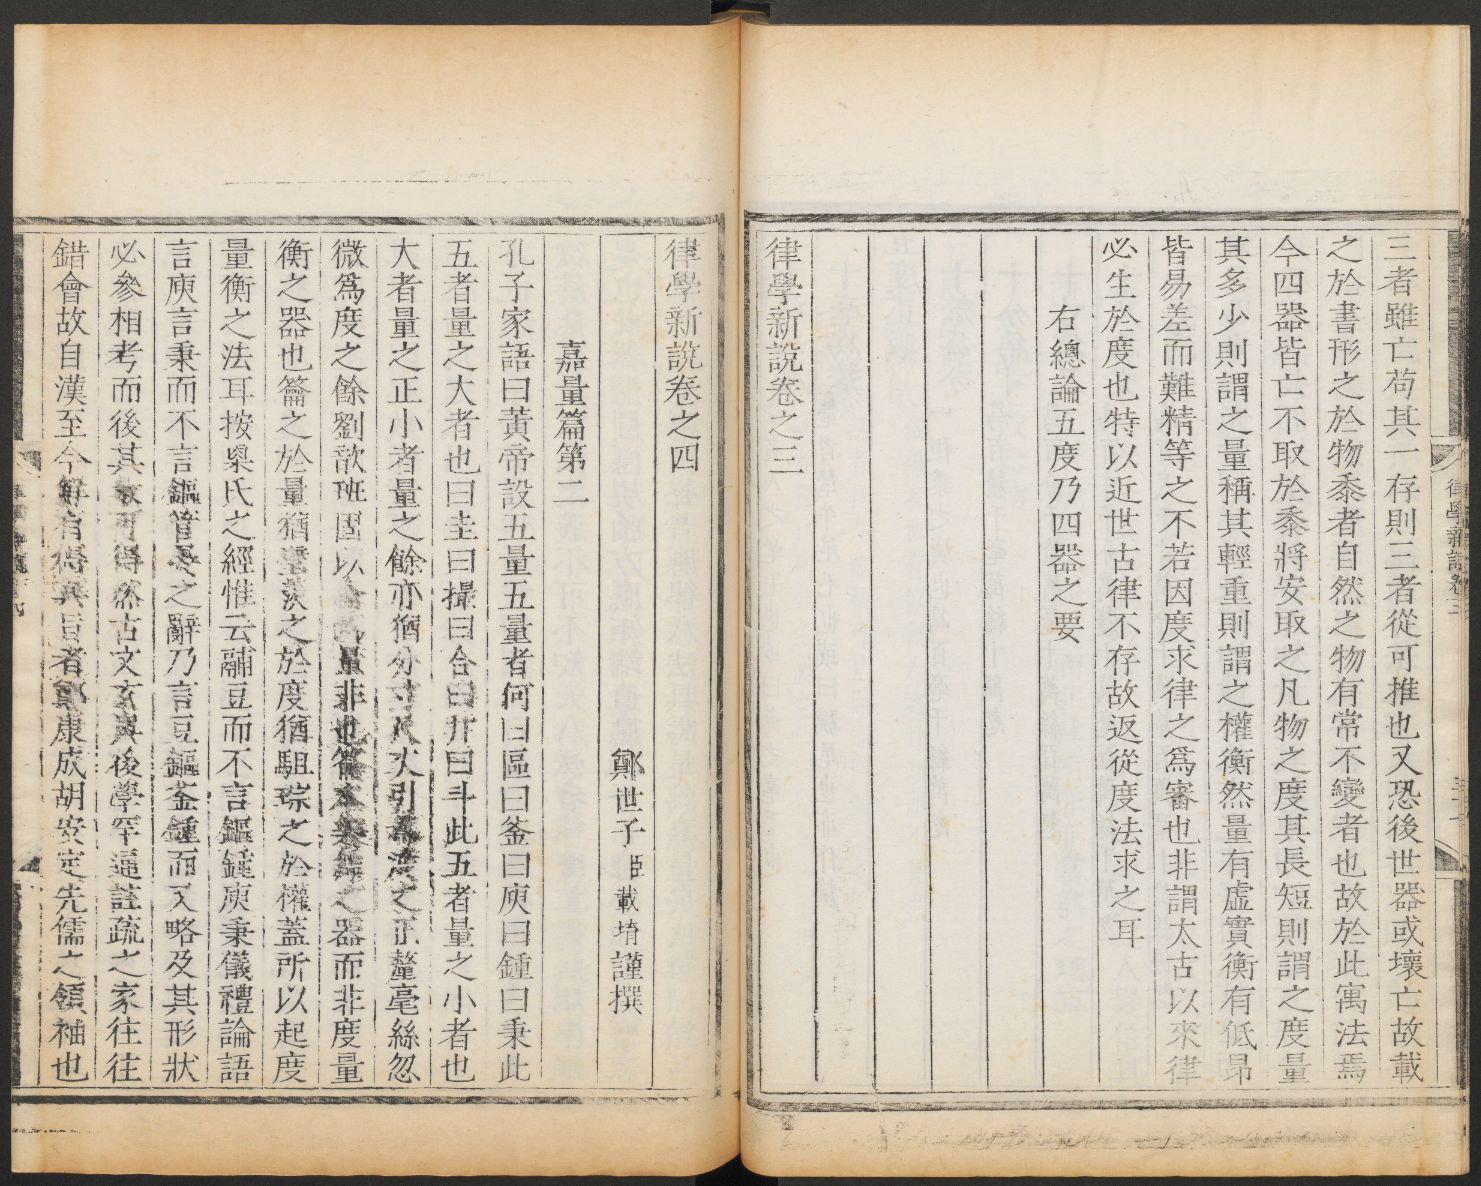 三者雖亡苟其一存則三者從可推也又恐後世器或壞亡故載
之於書形之於物黍者自然之物有常不變者也故於此寓法焉
今四器皆亡不取於黍將安取之凡物之度其長短則謂之度量
其多少則謂之量稱其輕重則謂之權衡然量有虛實衡有低昂
皆易差而難精等之不若因度求律之爲審也非謂太古以來律
必生於度也特以近世古律不存故返從度法求之耳
右總論五度乃四器之要
律學新說卷之三
律學新說卷之四
鄭世子臣載堉謹撰
嘉量篇第二
孔子家語曰黃帝設五量五量者何曰區曰釜曰庾曰鍾曰秉此
五者量之大者也曰圭曰撮曰合曰升曰斗此五者量之小者也
大者量之正小者量之餘亦猶分寸尺丈引爲度之正釐毫絲忽
微爲度之餘劉歆班固以龠爲量非也龠本樂
之器而非度量
衡之器也龠之於量猶羣黍之於度猶駔琮之於權蓋所以起度
量衡之法耳按㮚氏之經惟云鬴豆而不言鏂鍾庾秉儀禮論語
言庾言秉而不言鏂管晏之辭乃言豆鏂釜鍾而又略及其形狀
必參相考而後其數可得然古文玄奧後學罕通註疏之家往往
錯會故自漢至今解有得其旨者鄭康成胡安定先儒之領袖也
律學新說卷三